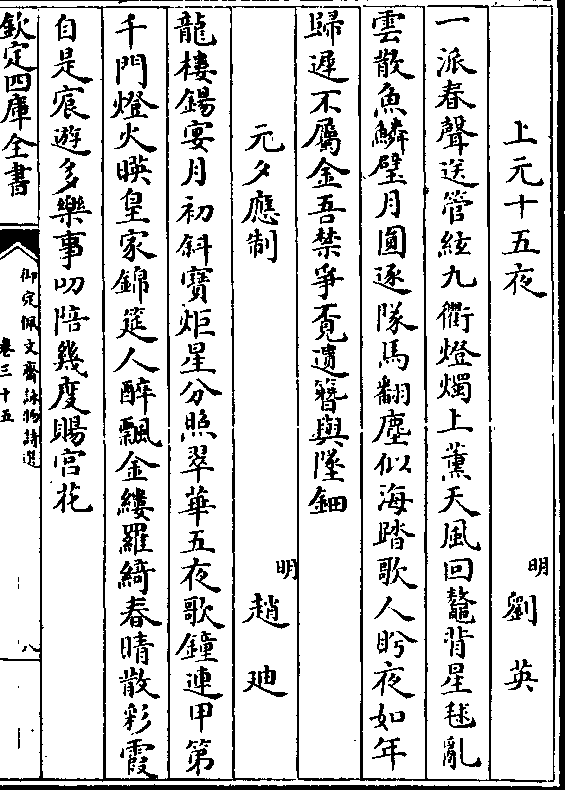 上元十五夜
明 劉英
一派春聲送管絃九衢燈燭上薫天風回鼇背星毬亂
雲散魚鱗璧月圓逐隊馬翻塵似海踏歌人盻夜如年
歸遲不屬金吾禁爭覔遺簪與墜鈿
元夕應制
明 趙迪
龍樓錫宴月初斜寶炬星分照翠華五夜歌鐘連甲第
千門燈火暎皇家錦筵人醉飄金縷羅綺春晴散彩霞
自是宸遊多樂事叨陪幾度賜宮花
欽定四庫全書
御定佩文齋詠物詩選
卷三十五
八